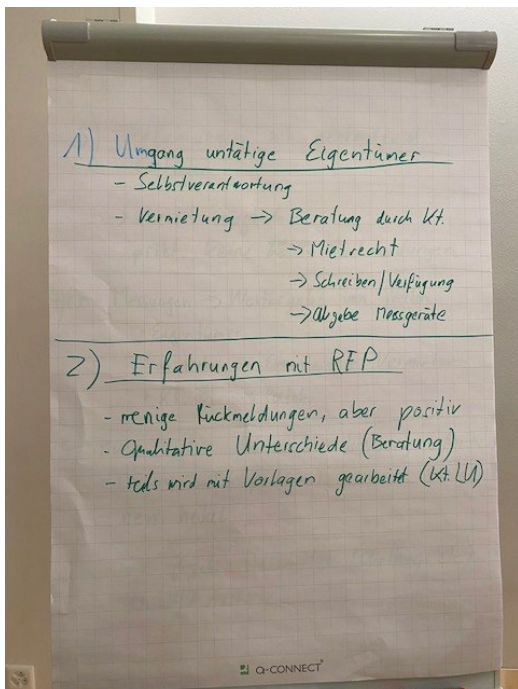 1) Umgang untätige Eigentümer
- Selbstverantwortung
- Vermietung → Beratung durch Kt.
→ Mietrecht
→ Schreiben/Verfügung
→ Abgabe Messgeräte
2) Erfahrungen mit RFP
- wenige Rückmeldungen, aber positiv
- Qualitative Unterschiede (Beratung)
- teils wird mit Vorlagen gearbeitet (Kt. LU)
Q-CONNECT